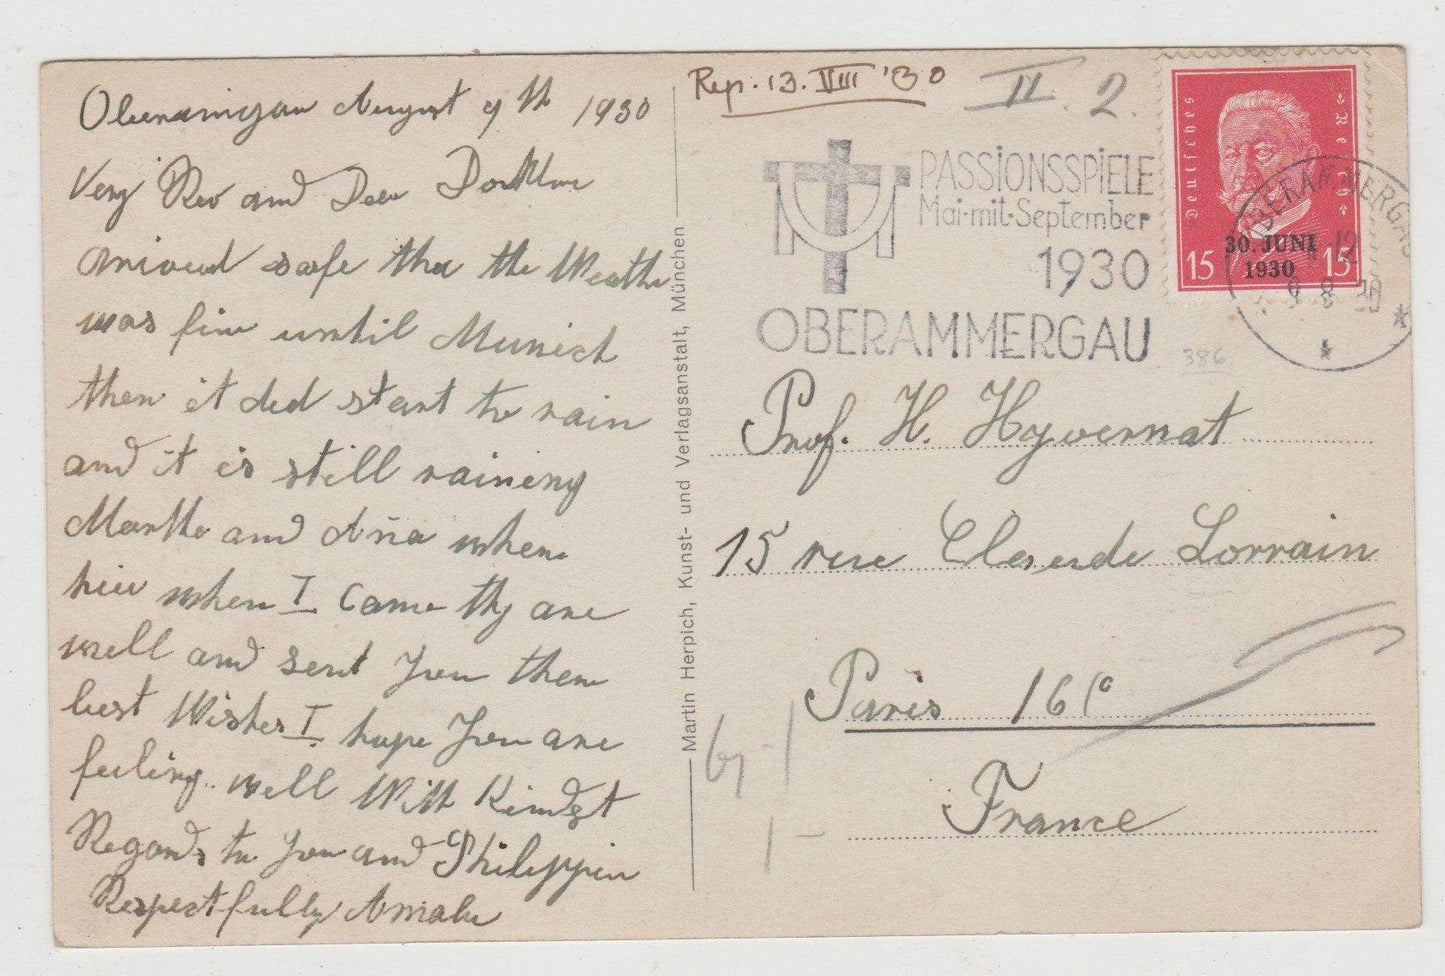 Oberamergau August 9th 1930
Very Rev and Dear Doctor
arrived safe the the Weathe
was fine until Munich
then it did start to rain
and it is still raining
Martha and Aña where
hier when I came thy are
well and sent you them
best Wishes I hope you are
feeling well With Kindest
Regards to you and Philippin
Respectfully Amalie
Martin Herpich, Kunst- und Verlagsanstalt, München
Rep. 13. VIII '30
II. 2.
PASSIONSSPIELE
Mai-mit-September
1930
OBERAMMERGAU
Deutsches Reich
30. JUNI
1930
15 15
OBERAMMERGAU
9 8 30
386
Prof. H. Hyvernat
15 rue Claude Lorrain
Paris 16e
France